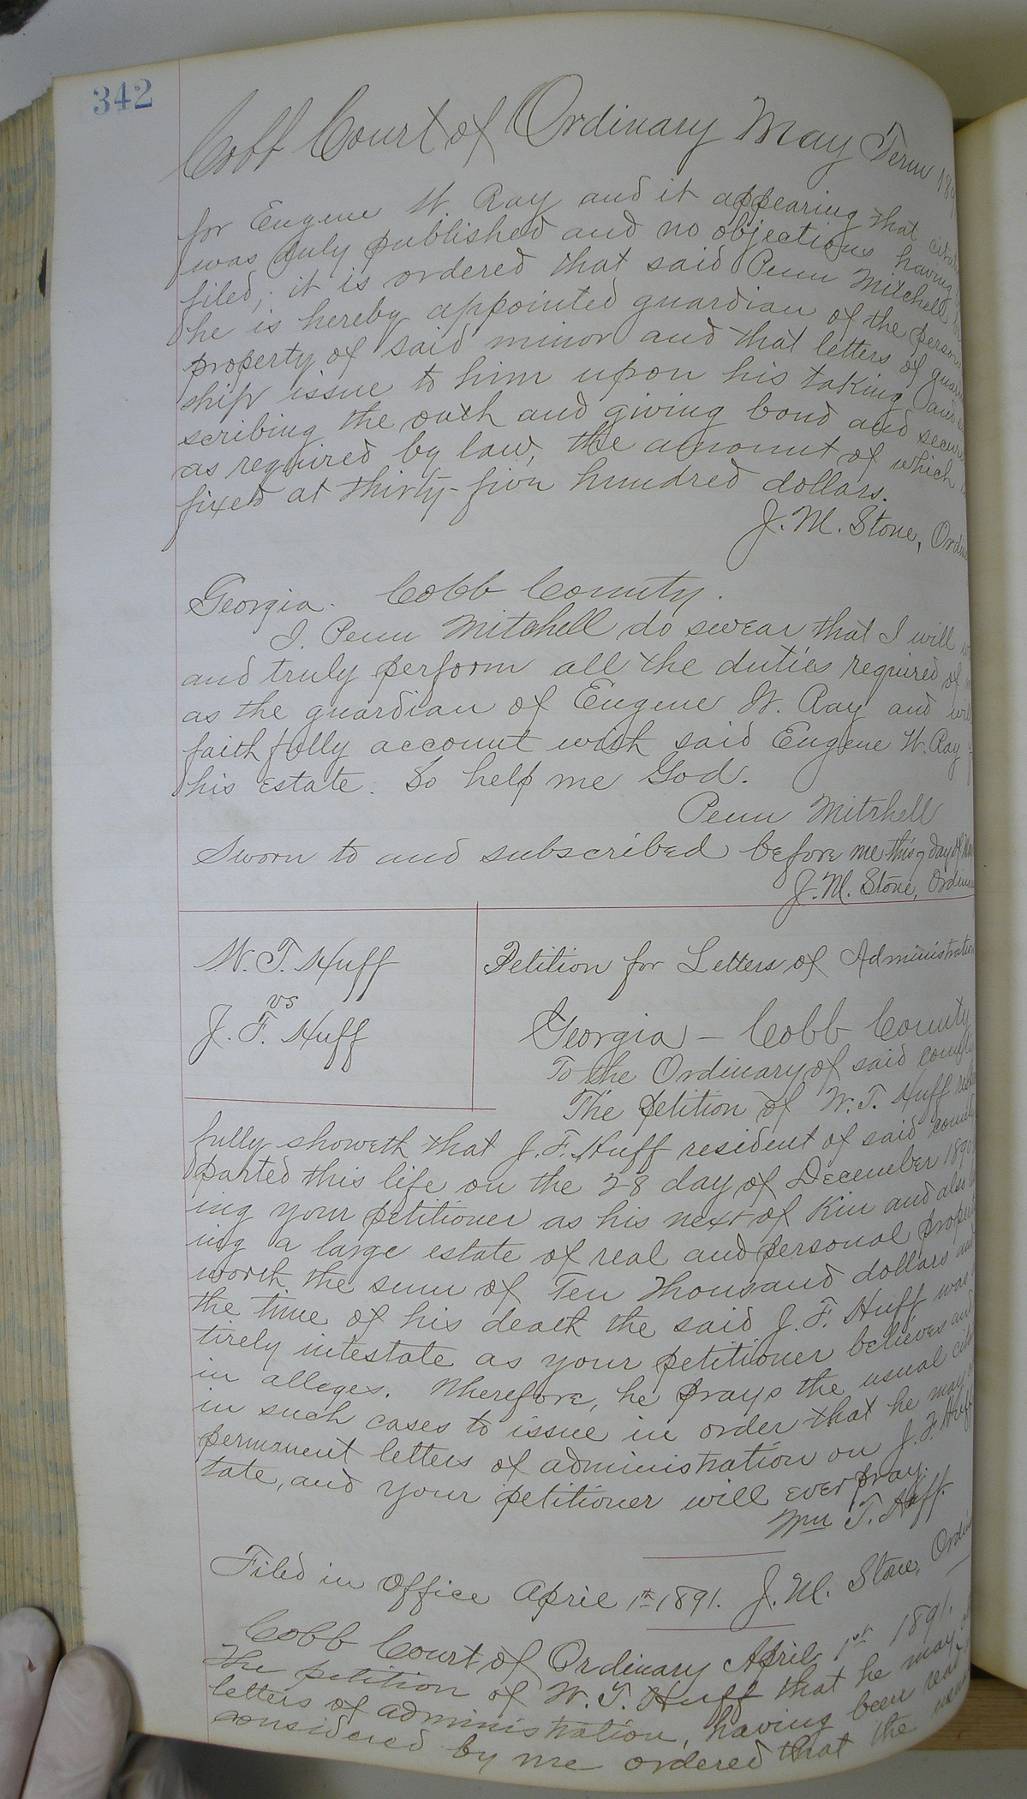 342
Cobb Court of Ordinary May Term 189
for Eugene W. Ray and it appearing that
was duly published and no objections having
filed, it is ordered that said Penn Mitchell
he is hereby appointed guardian of the person
property of said minor and that letters of guar
ship issue to him upon his taking and
scribing the oath and giving bond and secur
as required by law, the amount of which
fixed at thirty-five hundred dollars.
J. M. Stone, Ord
Georgia. Cobb County.
I. Penn Mitchell do swear that I will
and truly perform all the duties required of
as the guardian of Eugene W. Ray and will
faithfully account with said Eugene W. Ray
his estate. So help me God.
Penn Mitchell
Sworn to and subscribed before me this 7 day of
J. M. Stone, Ordin
W. T. Huff
vs
J. F. Huff
Petition for Letters of Administration
Georgia - Cobb County
To the Ordinary of said county
The petition of W. T. Huff res
fully showeth that J. F. Huff resident of said county
parted this life on the 28 day of December 1890
ing your petitioner as his next of Kin and also
ing a large estate of real and personal proper
worth the sum of Ten Thousand dollars and
the time of his death the said J. F. Huff was
tirely intestate as your petitioner believes and
in alleges. Wherefore, he prays the usual cit
in such cases to issue in order that he may
permanent letters of administration on J. F. Huff
tate, and your petitioner will ever pray.
Wm T. Huff.
Filed in office April 1st 1891. J. M. Stone, Ordin
Cobb Court of Ordinary April 1st 1891.
The petition of W. T. Huff that he may
letters of administration, having been read
considered by me ordered that the